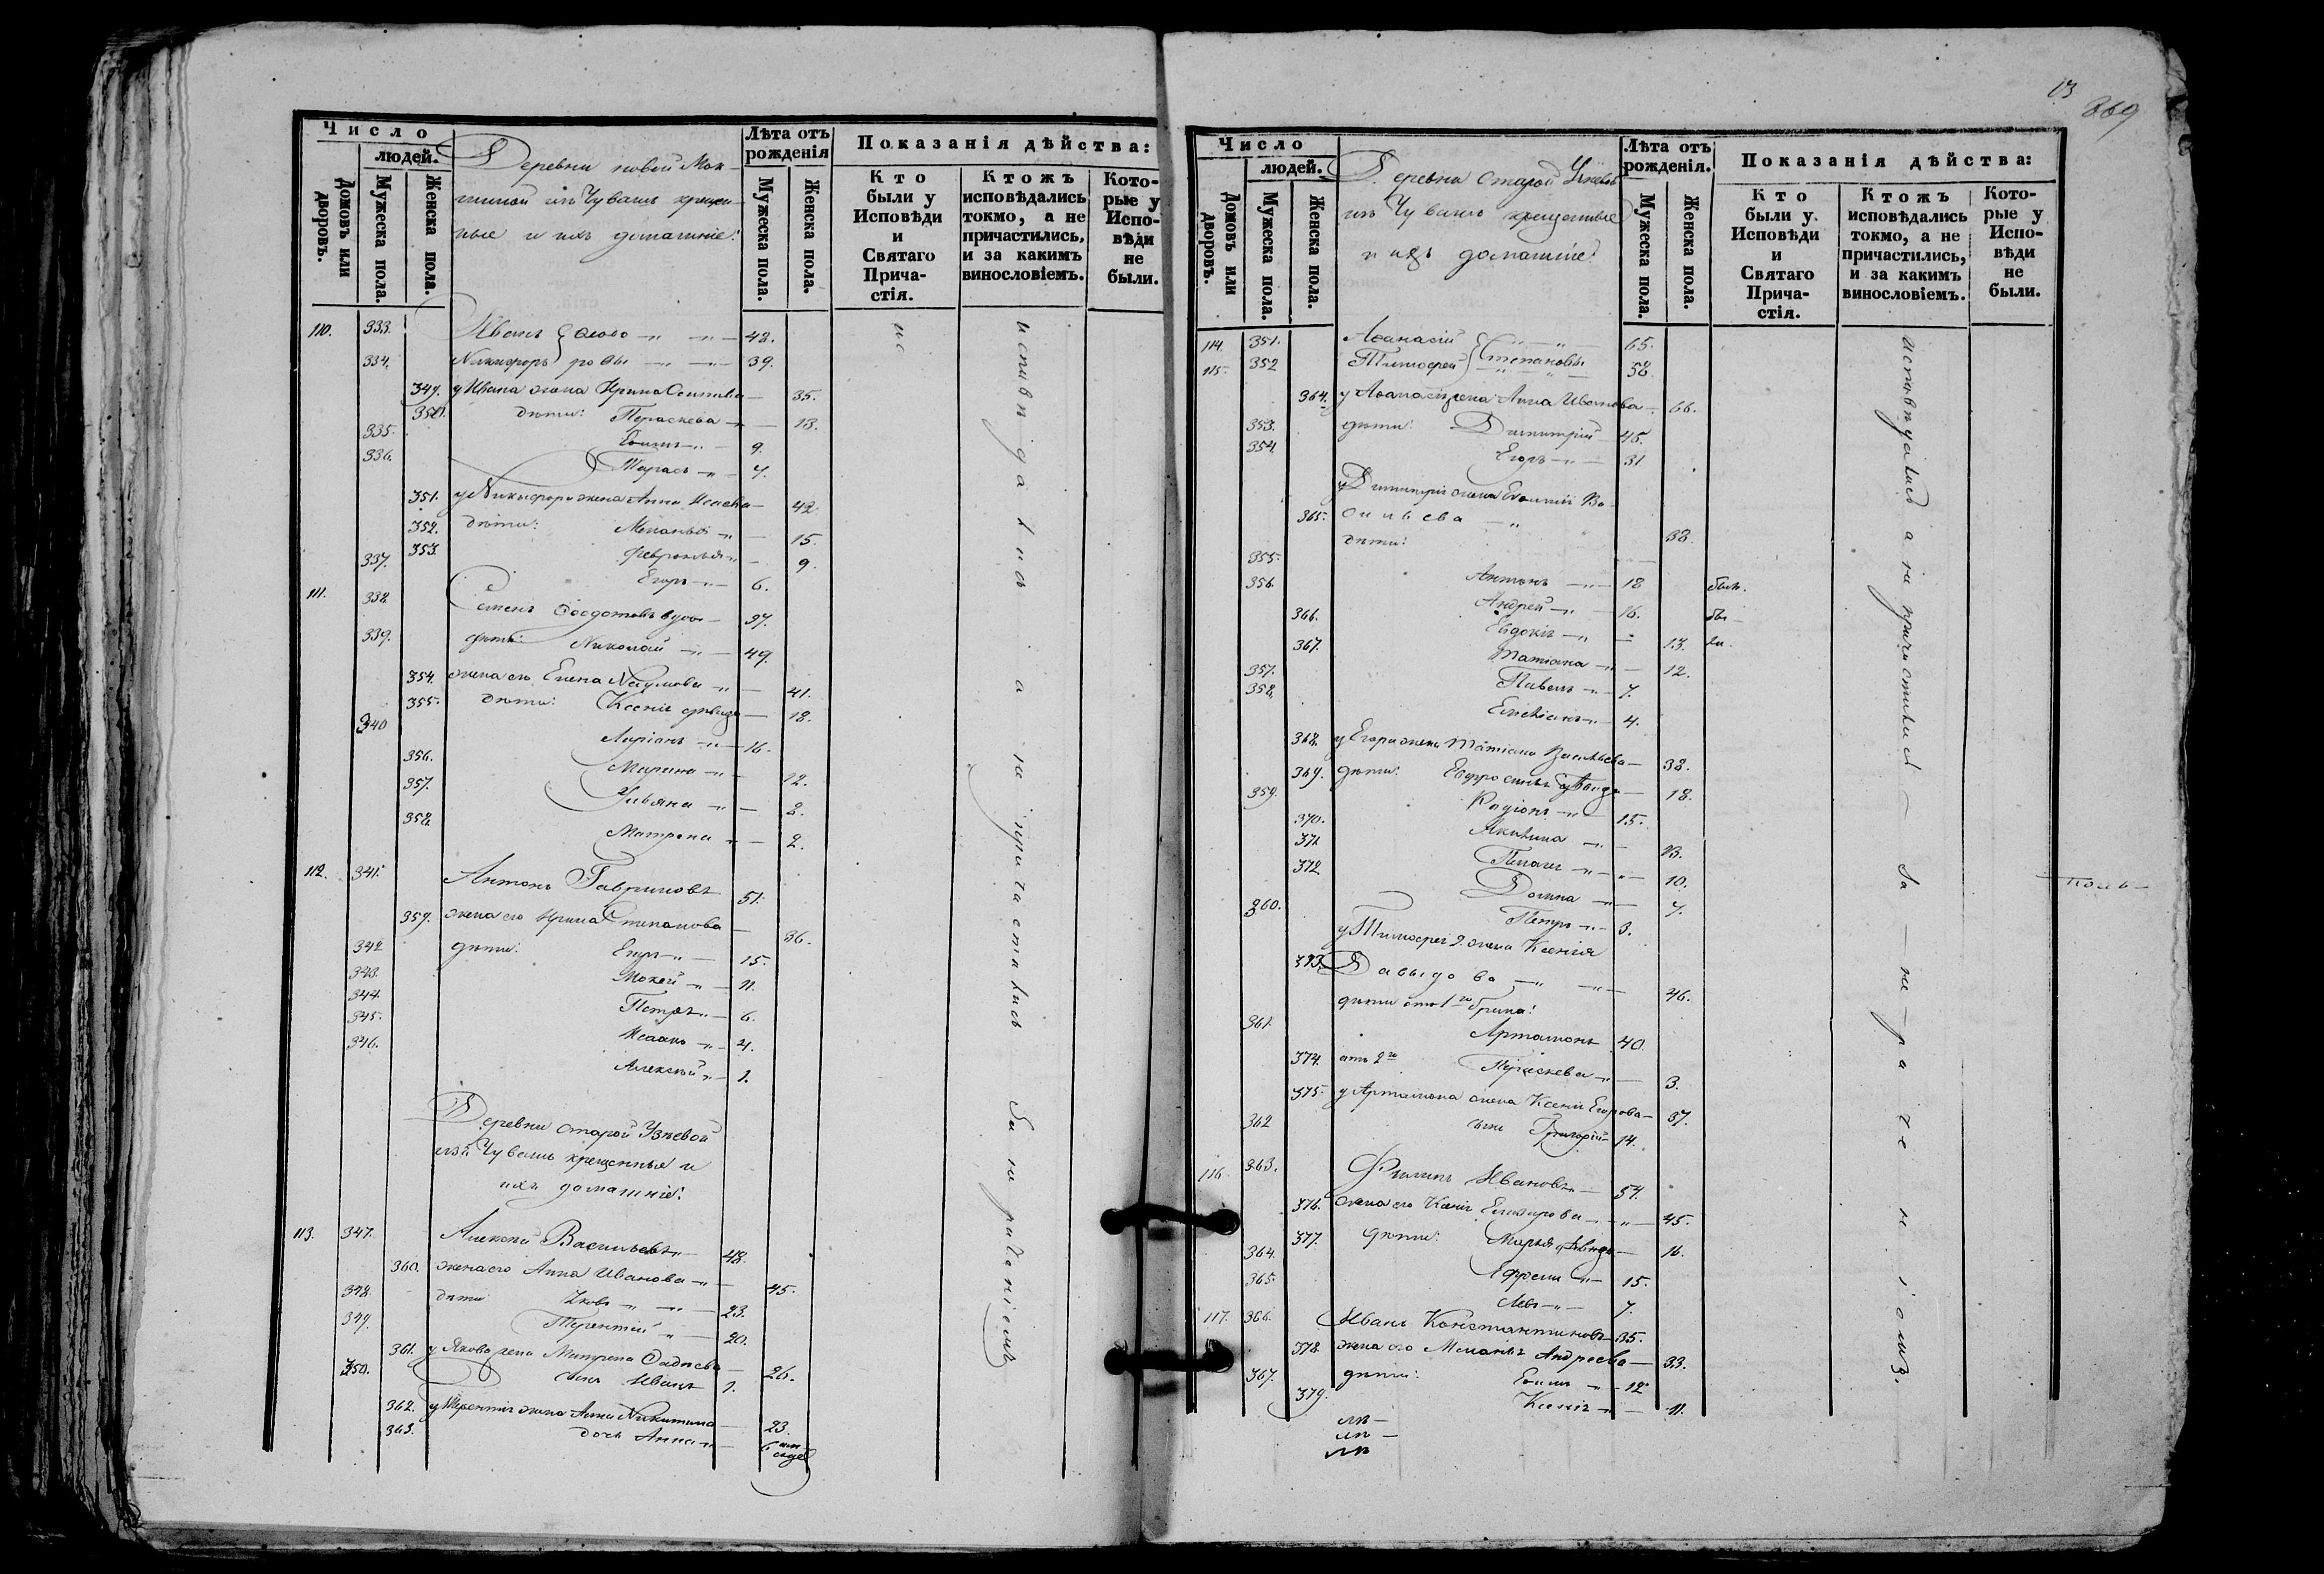 Число
людей.
Домовъ или дворовъ.
Мужеска пола.
Женска пола.
Деревни новой Мок-
шиной изъ Чувашъ крещен-
ные и ихъ домашніе:
Лѣта отъ рожденія
Мужеска пола.
Женска пола.
Показанія дѣйства:
Кто были у Исповѣди и Святаго Прича- стія.
Ктожъ исповѣдались токмо, а не причастились, и за какимъ винословіемъ.
Кото- рые у Испо- вѣди не были.
110. 333. Иванъ 42.
334. Никифоръ 39.
349. у Ивана жена Ирина Осипова 35.
350. дѣти: Параскева 18.
335. 9.
336. Тарасъ 7.
351. у Никифора жена Анна Исаева 42.
352. дѣти: Меланья 15.
353. Февронья 9.
337. Егоръ 6.
111. 338. Семенъ Ѳедотовъ вдов 97.
339. дѣти: Николай 49.
354. жена его Елена Наумова 41.
355. дѣти: Ксенія дѣвица 18.
340 Ларіонъ 16.
356. Марина 12.
357. Ульяна 8.
358. Матрена 2.
112. 341. Антонъ Гавриловъ 51.
359. жена его Ирина Степанова 36.
342 дѣти: Егоръ 15.
343. Мокей 11.
344. Петръ 6.
345. Исаакъ 4.
346. Алексѣй 1.
Деревни старой Узѣевой
изъ Чувашъ крещенныя и
ихъ домашніе:
113. 347. Алексѣй Васильевъ 48.
360. жена его Анна Иванова 45.
348. дѣти Яковъ 23.
349. Терентій 20.
361. у Якова жена Матрена 26.
350. сынъ Иванъ 1.
362. у Терентія жена Анна Никитина 23.
363. дочь Анна 6
исповѣдались а не причастились за нераченіемъ
13
369
Число
людей.
Домовъ или дворовъ.
Мужеска пола.
Женска пола.
Деревни старой
изъ Чувашъ крещенные
и ихъ домашніе
Лѣта отъ рожденія.
Мужеска пола.
Женска пола.
Показанія дѣйства:
Кто были у Исповѣди и Святаго Прича- стія.
Ктожъ исповѣдались токмо, а не причастились, и за какимъ винословіемъ.
Кото- рые у Испо- вѣди не были.
114. 351. Аѳанасій 65.
115. 352 Тимоѳей Степановы 58.
364. у Аѳанасія жена Анна Иванова 66.
353. дѣти: Димитрій 45.
354. Егоръ 31
у Димитрія жена Ва-
365. сильева 38.
дѣти:
355. Антонъ 18
356. Андрей 16.
366. Евдокія 13.
367. Татіана 12.
357. Павелъ 7.
358. Емеліанъ 4.
368. у Егора жена Татіана Васильева 38.
369. дѣти: Евфросинья дѣвица 18.
359. Родіонъ 15.
370. Акилина 13.
371 Пелагея 10.
372 Домна 7.
360. Петръ 3.
у Тимоѳея 2. жена Ксенія
373. Давыдова 46.
дѣти отъ 1го брака:
361. Артамонъ 40.
374. отъ 2го Параскева 3.
375. у Артамона жена Ксенія Егорова 37.
362 сынъ Григорій 14.
116. 363. Филипъ Ивановъ 54.
376. жена его Ксенія 45.
377. дѣти: Марья дѣвица 16.
364. Ефремъ 15.
365. Левъ 7.
117. 366. Иванъ Константиновъ 35.
378. жена его Меланія Андреева 33.
367. дѣти: 12
379. Ксенія 11.
исповѣдались а не причастились за нераченіомъ.